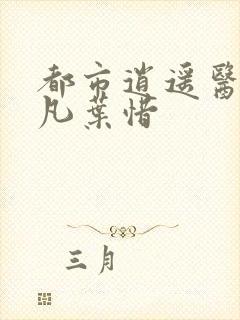 都市逍遥醫
凡葉惜
三月